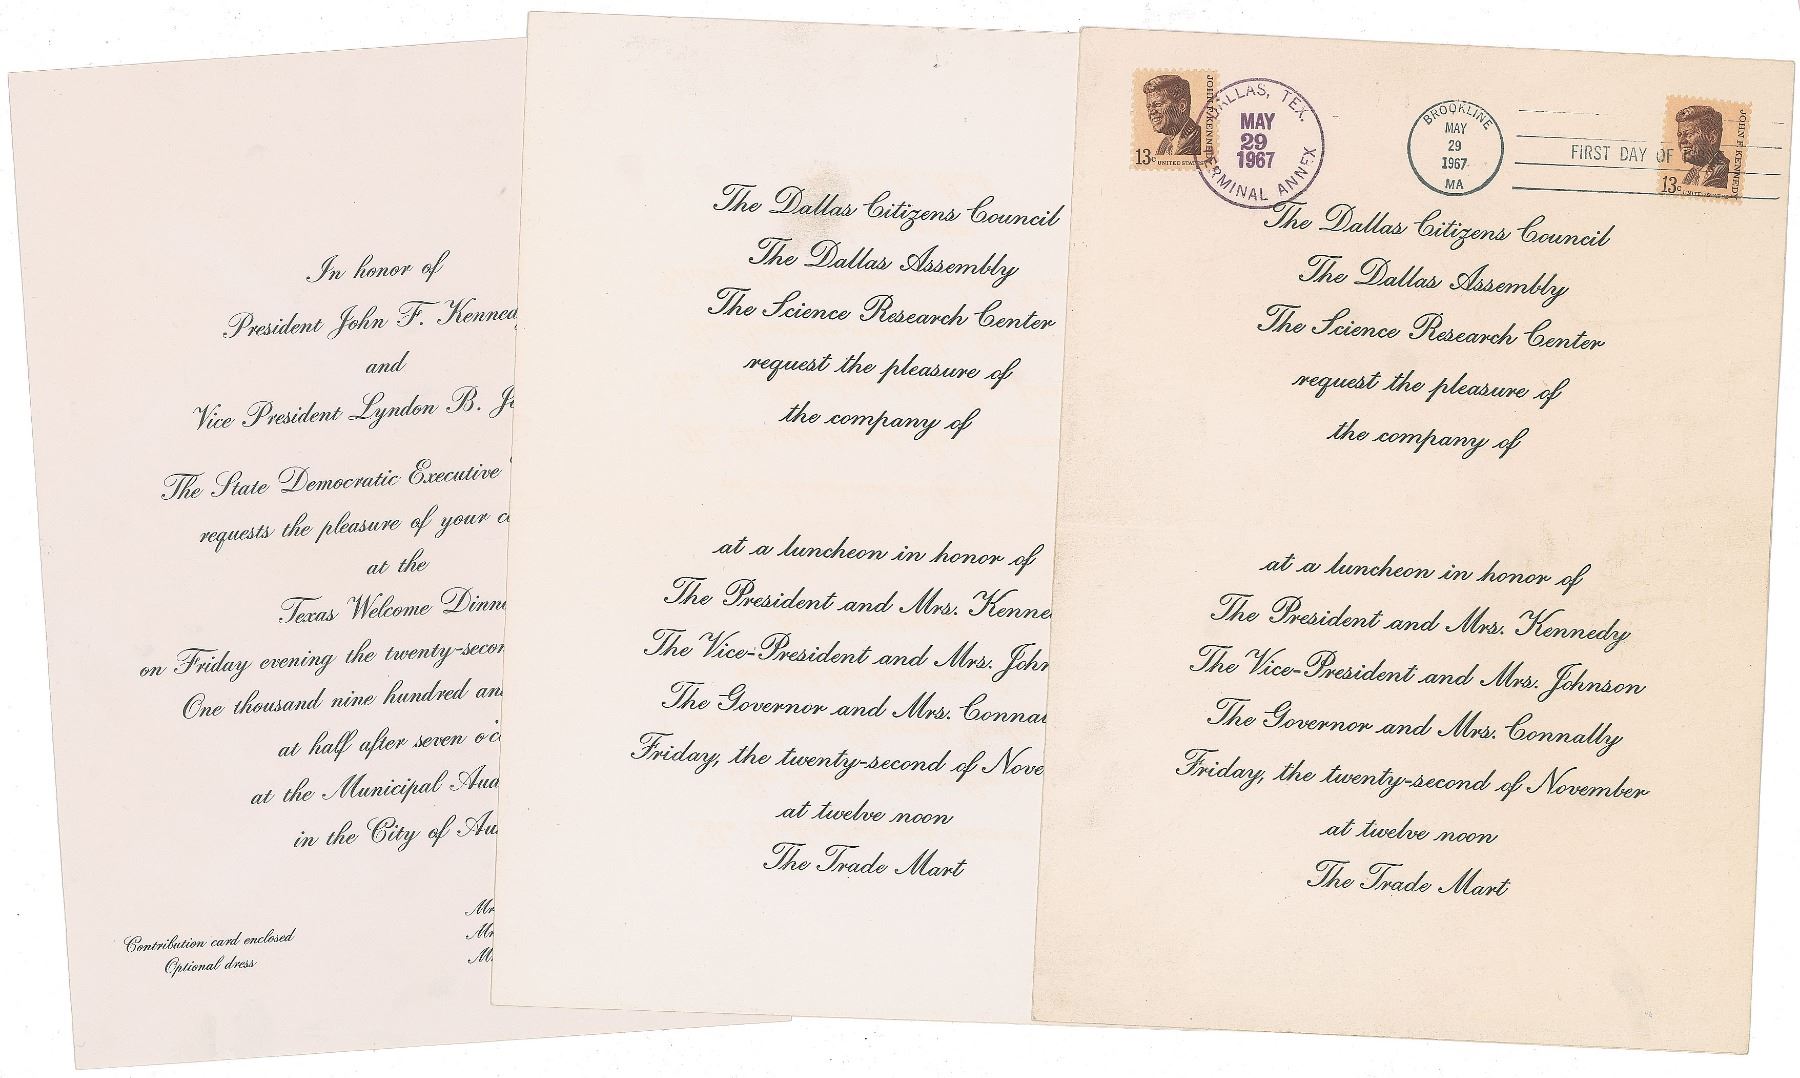 In honor of
President John F. Kenned
and
Vice President Lyndon B. J
The State Democratic Executive
requests the pleasure of your c
at the
Texas Welcome Dinn
on Friday evening the twenty-secon
One thousand nine hundred an
at half after seven o'c
at the Municipal Aud
in the City of Au
Contribution card enclosed
Optional dress
Mr
Mr
M
The Dallas Citizens Council
The Dallas Assembly
The Science Research Center
request the pleasure of
the company of
at a luncheon in honor of
The President and Mrs. Kenne
The Vice-President and Mrs. John
The Governor and Mrs. Connal
Friday, the twenty-second of Nove
at twelve noon
The Trade Mart
JOHN F. KENNEDY
13c UNITED STATES
DALLAS, TEX.
MAY
29
1967
TERMINAL ANNEX
BROOKLINE
MAY
29
1967
MA
FIRST DAY OF
JOHN F. KENNEDY
13c
The Dallas Citizens Council
The Dallas Assembly
The Science Research Center
request the pleasure of
the company of
at a luncheon in honor of
The President and Mrs. Kennedy
The Vice-President and Mrs. Johnson
The Governor and Mrs. Connally
Friday, the twenty-second of November
at twelve noon
The Trade Mart